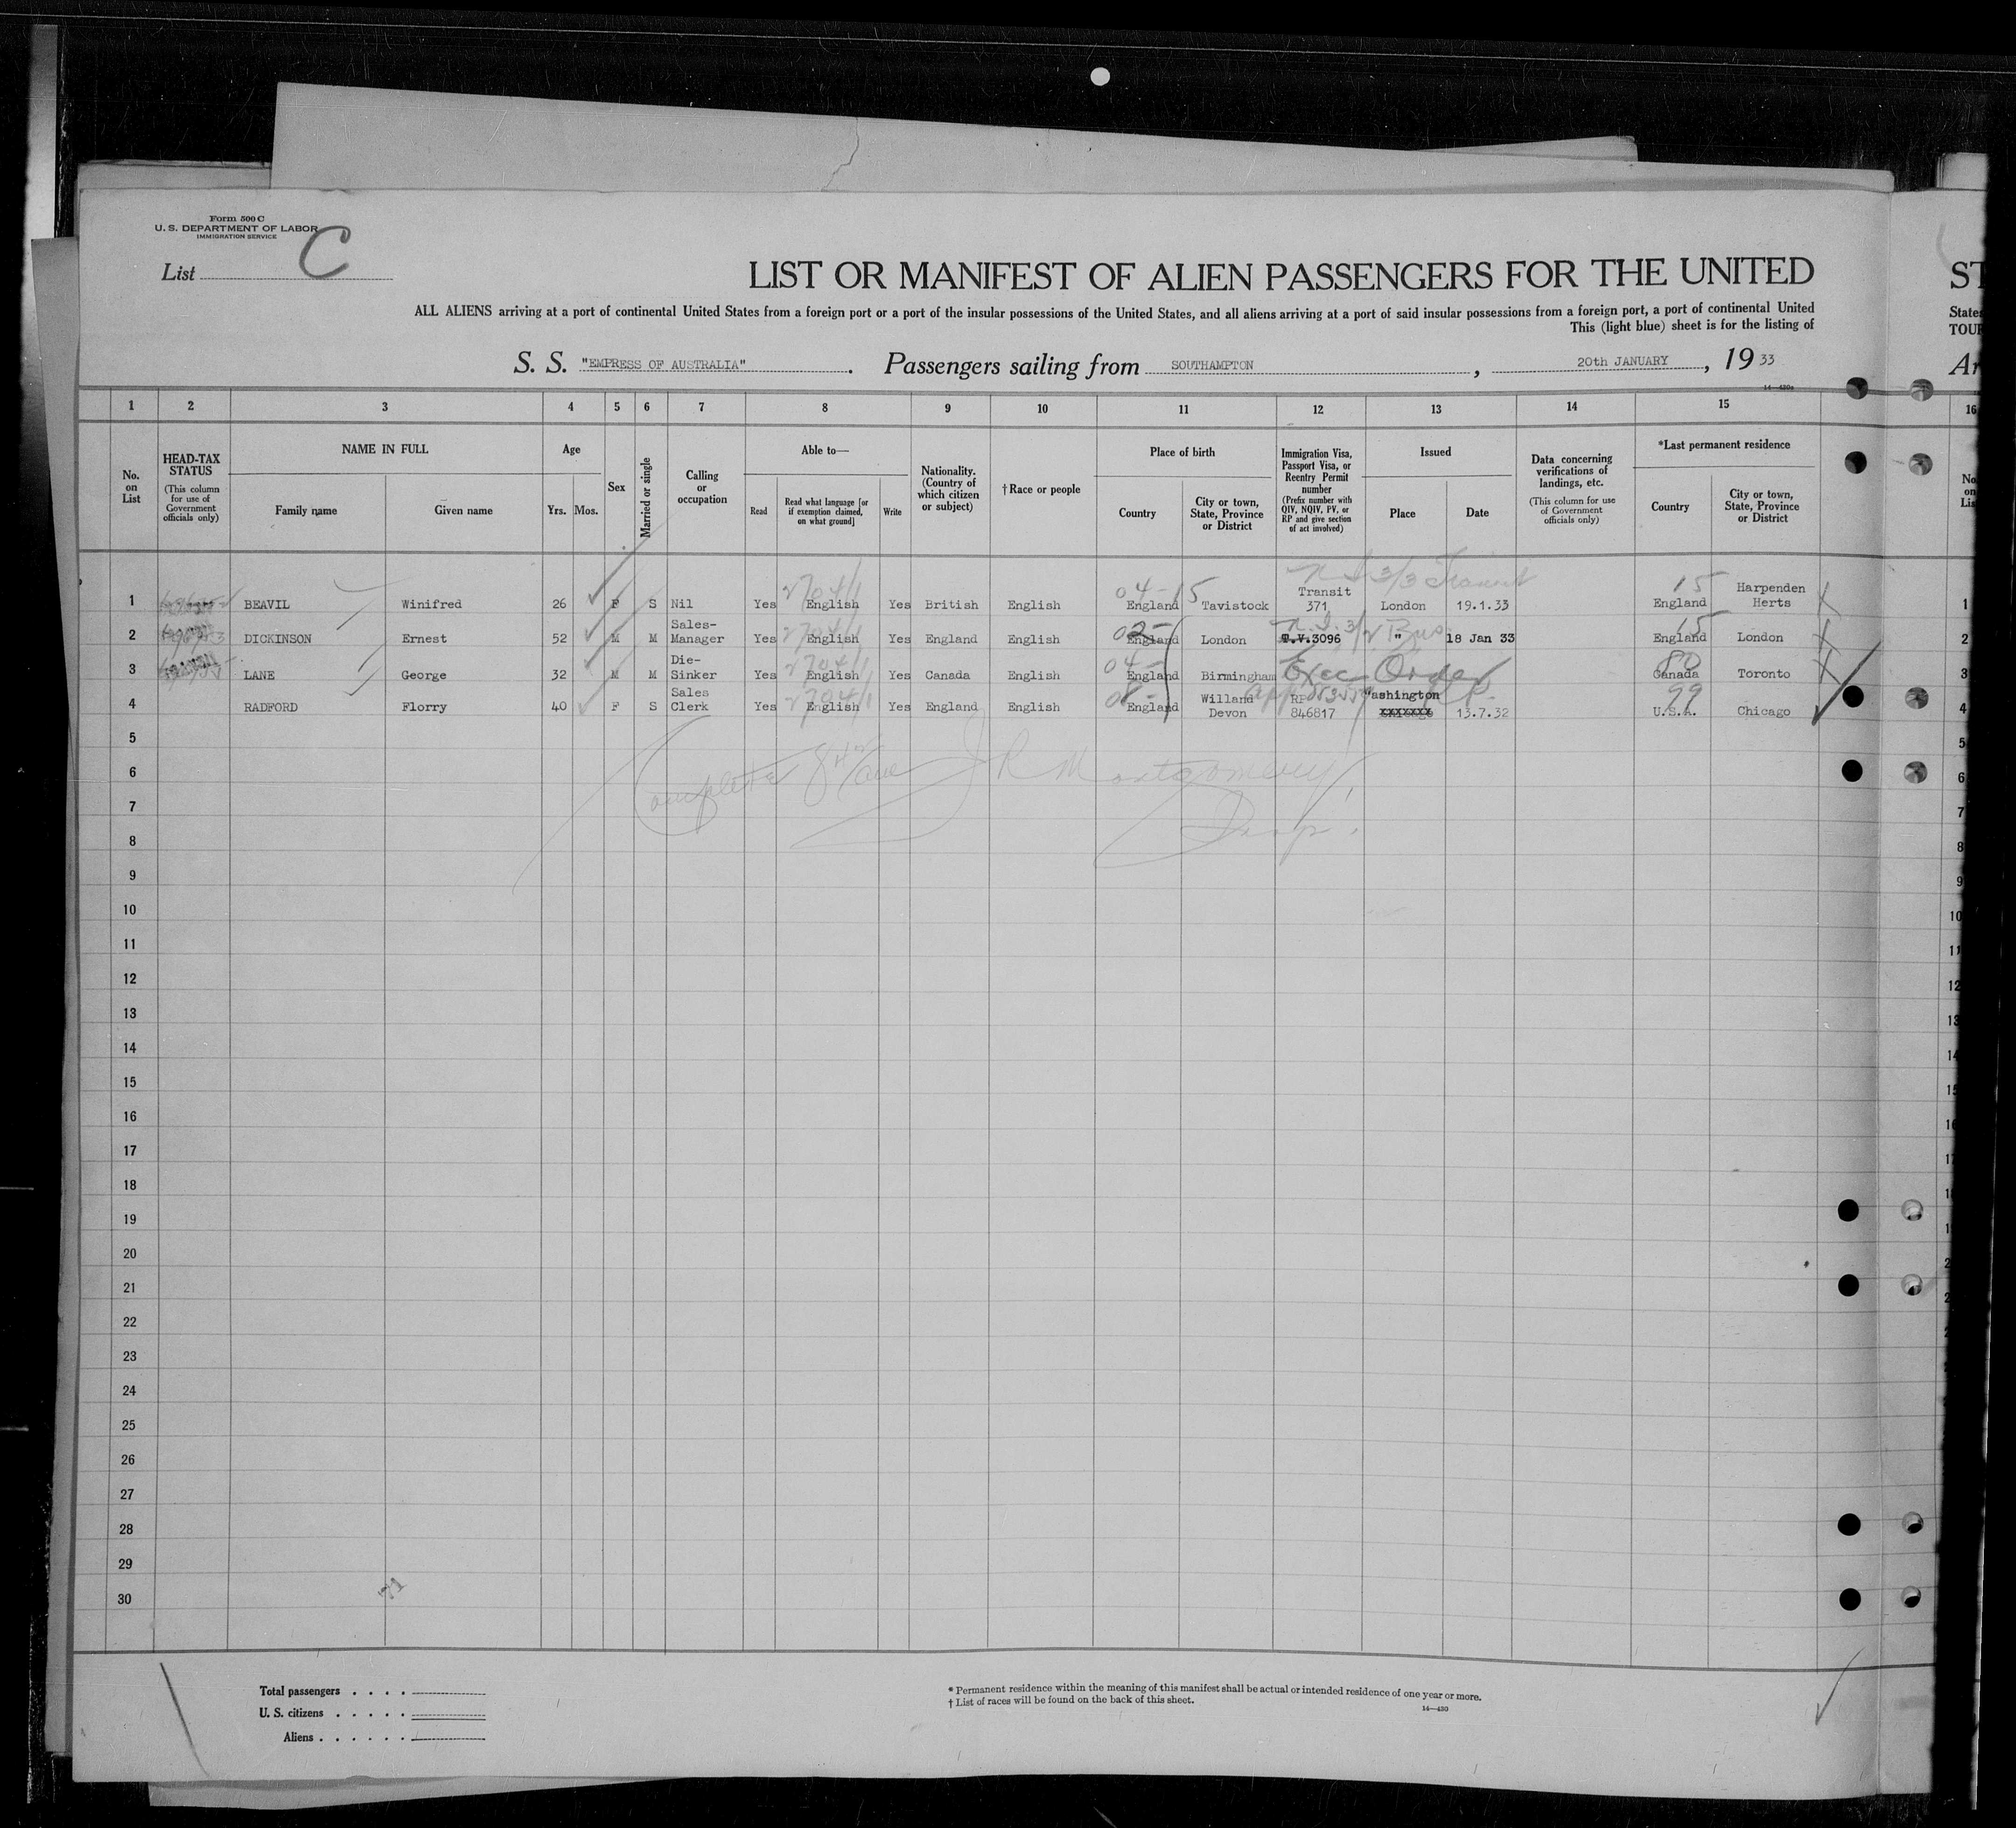 Form 500 C
U. S. DEPARTMENT OF LABOR
IMMIGRATION SERVICE
List C
LIST OR MANIFEST OF ALIEN PASSENGERS FOR THE UNITED
ST
ALL ALIENS arriving at a port of continental United States from a foreign port or a port of the insular possessions of the United States, and all aliens arriving at a port of said insular possessions from a foreign port, a port of continental United
States
This (light blue) sheet is for the listing of
S. S. "EMPRESS OF AUSTRALIA". Passengers sailing from SOUTHAMPTON, 20th JANUARY, 1933
1 2 3 4 5 6 7 8 9 10 11 12 13 14 15 16
No. on List
HEAD-TAX STATUS
(This column for use of Government officials only)
NAME IN FULL
Family name Given name
Age
Yrs. Mos.
Sex
Married or single
Calling or occupation
Able to—
Read
Read what language [or if exemption claimed, on what ground]
Write
Nationality. (Country of which citizen or subject)
†Race or people
Place of birth
Country
City or town, State, Province or District
Immigration Visa, Passport Visa, or Reentry Permit number
(Prefix number with QIV, NQIV, PV, or RP and give section of act involved)
Issued
Place Date
Data concerning verifications of landings, etc.
(This column for use of Government officials only)
*Last permanent residence
Country
City or town, State, Province or District
3/3 Transit
1 BEAVIL Winifred 26 F S Nil Yes English Yes British English England Tavistock Transit 371 London 19.1.33 England Harpenden Herts
2 DICKINSON Ernest 52 M M Sales-Manager Yes English Yes England English England London T.V.3096 " 18 Jan 33 England London
3 LANE George 32 M M Die-Sinker Yes English Yes Canada English England Birmingham Exec Order Canada Toronto
4 RADFORD Florry 40 F S Sales Clerk Yes English Yes England English England Willand Devon RP 846817 Washington 13.7.32 U.S.A. Chicago
5
6
Complete J R Montgomery
Insp!
7
8
9
10
11
12
13
14
15
16
17
18
19
20
21
22
23
24
25
26
27
28
29
30
71
Total passengers
U. S. citizens
Aliens
* Permanent residence within the meaning of this manifest shall be actual or intended residence of one year or more.
† List of races will be found on the back of this sheet.
14—430